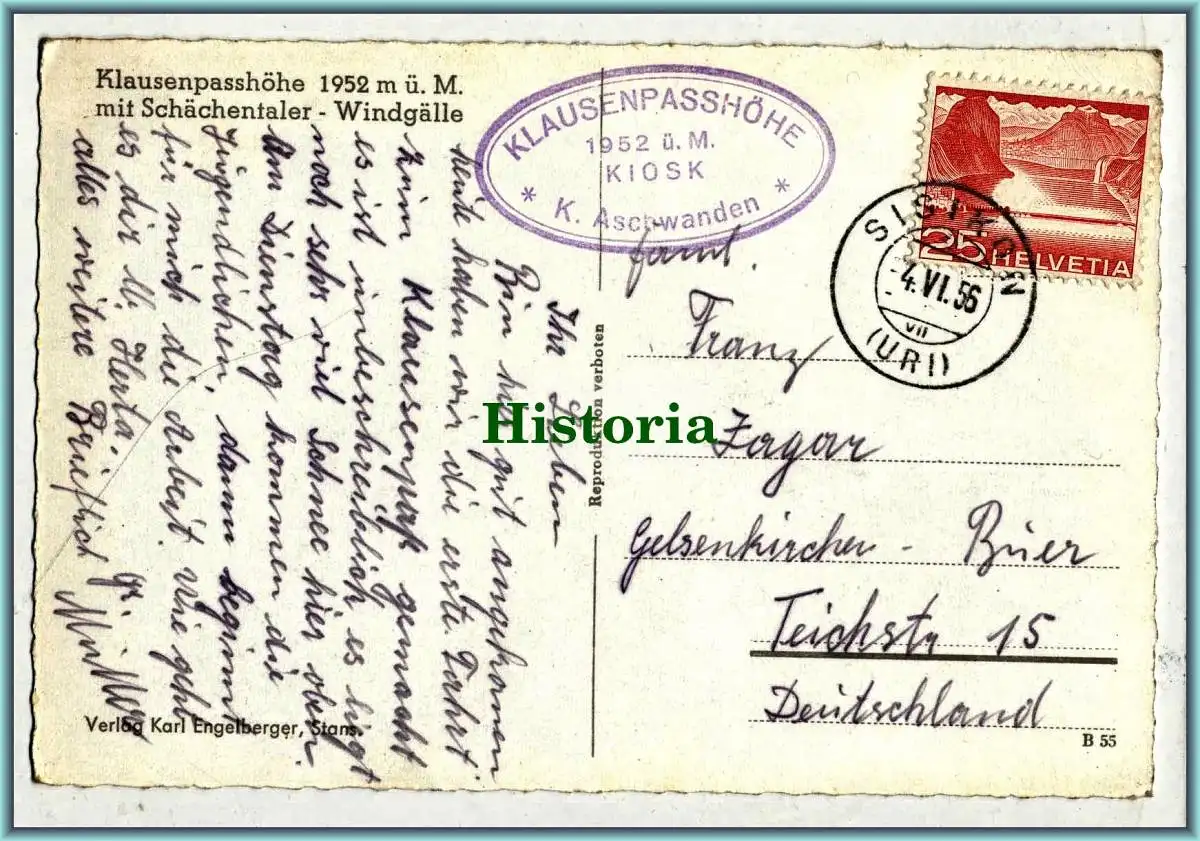 Klausenpasshöhe 1952 m ü. M.
mit Schächentaler - Windgälle
KLAUSENPASSHÖHE
1952 ü. M.
KIOSK
* K. Aschwanden *
25 HELVETIA
SISIKON
-4.VI.56
VII
(URI)
Ihr Lieben
Bin hir gut angekommen
heute haben wir die erste Fahrt
zum Klausenpaß gemacht
es ist unbeschreiblich es ligt
noch sehr viel Schnee hier oben.
Am Dienstag kommen die
Jugendlichen, dann beginnt
für mich die Arbeit. Wie geht
es dir lb. Herta.
alles weitere Brieflich
Historia
Reproduktion verboten
Faml.
Franz
Zagar
Gelsenkirchen - Buer
Teichstr 15
Deutschland
Verlag Karl Engelberger, Stans.
B 55